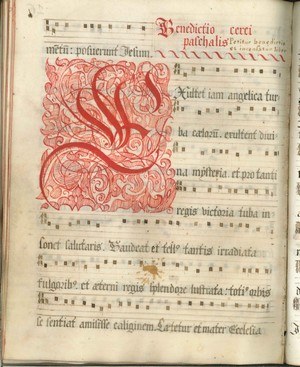 Benedictio cerei
paschalis
mētū: posuerunt Jesum.
EXultet iam angelica tur
ba cælorū. exultent divi
na mysteria et pro tanti
regis victoria tuba in
sonet salutaris. Gaudeat et tellꝰ tantis irradiata
fulgoribꝰ. et æterni regis splendore lustrata: totiꝰ orbis
se sentiat amisisse caliginem. Lætetur et mater Ecclesia